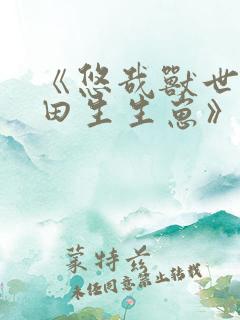 《悠哉獸世
田生生崽》
蒙特兹
未经同意禁止转载